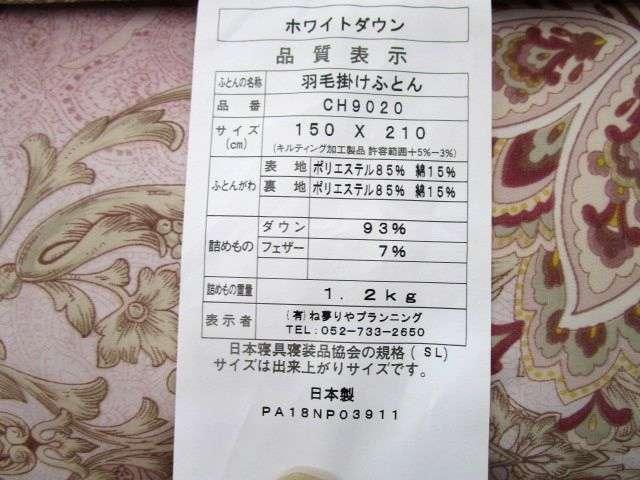 ホワイトダウン
品質表示
ふとんの名称 羽毛掛けふとん
品番 CH9020
サイズ(cm) 150 X 210
(キルティング加工製品 許容範囲+5%-3%)
ふとんがわ 表地 ポリエステル85% 綿15%
裏地 ポリエステル85% 綿15%
詰めもの ダウン 93%
フェザー 7%
詰めもの重量 1.2kg
表示者 (有)ね夢りやプランニング
TEL:052-733-2650
日本寝具寝装品協会の規格(SL)
サイズは出来上がりサイズです。
日本製
PA18NP03911